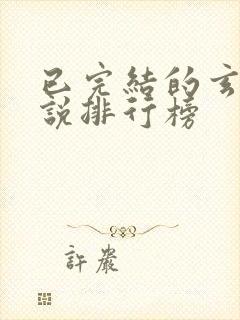 已完結的玄
說排行榜
許嚴